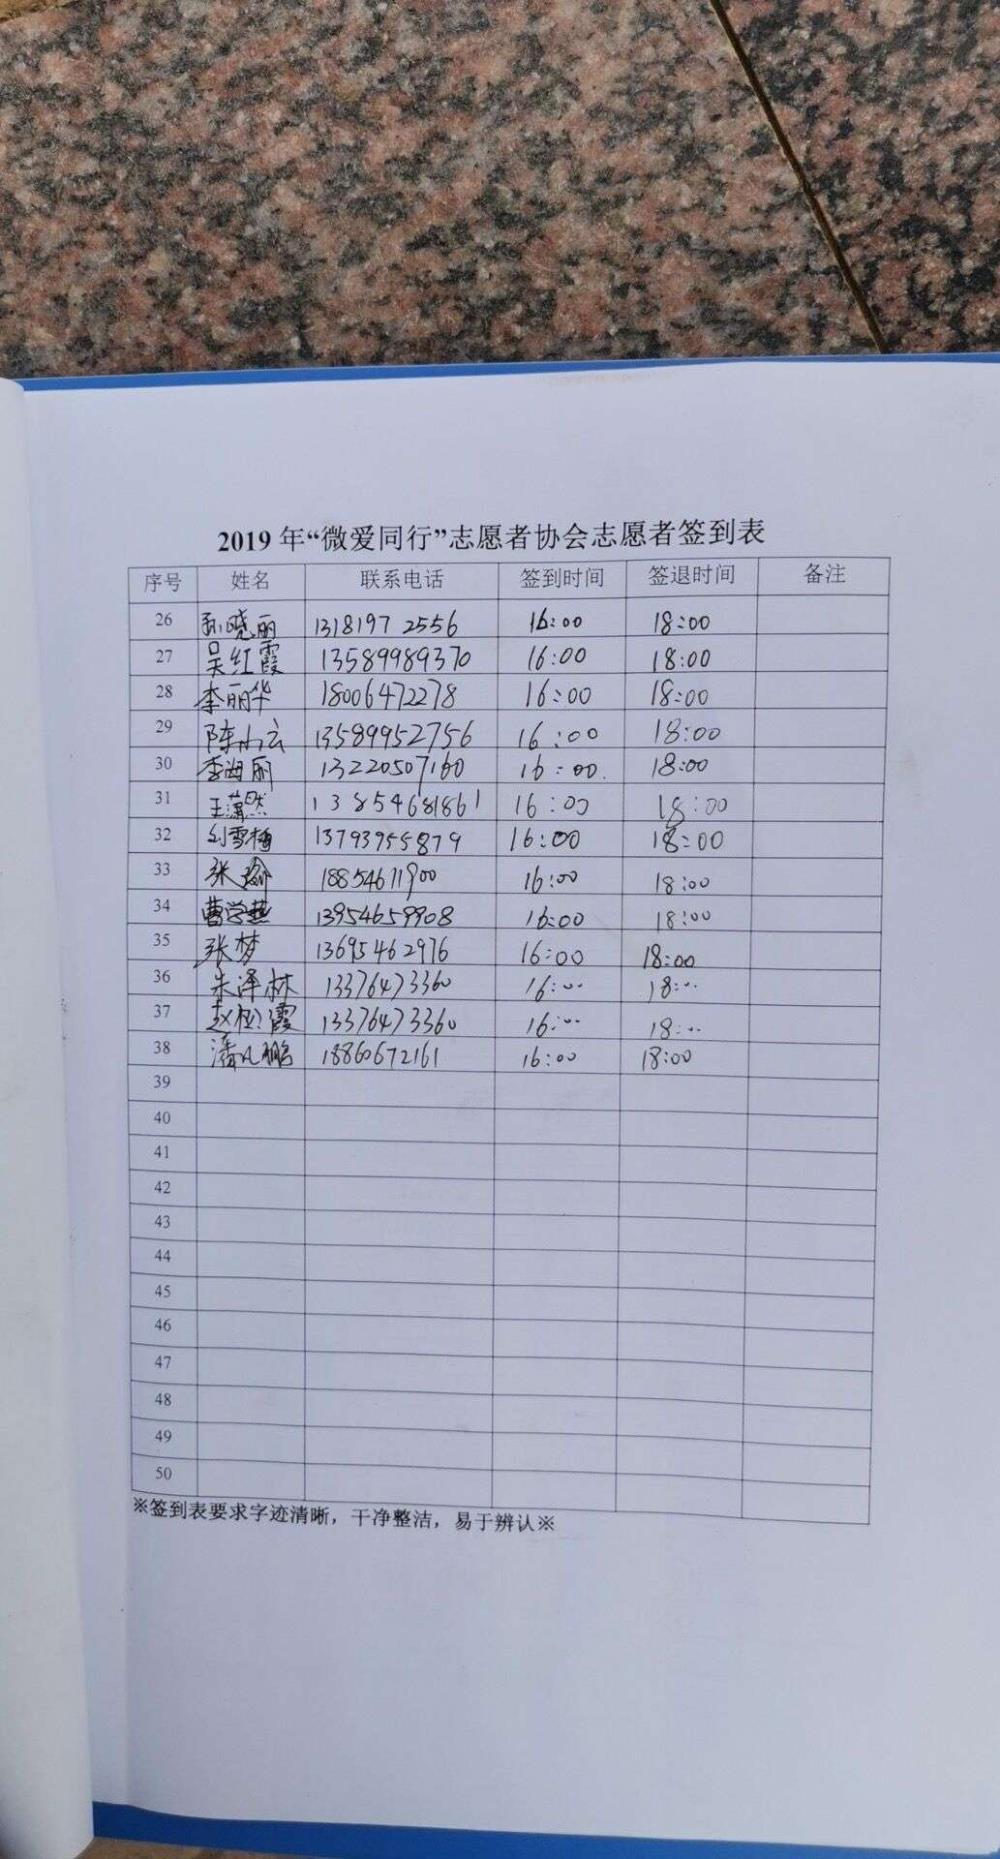 2019 年“微爱同行”志愿者协会志愿者签到表
序号 姓名 联系电话 签到时间 签退时间 备注
26 孙晓丽 13181972556 16:00 18:00
27 吴红霞 13589989370 16:00 18:00
28 李丽华 18006472278 16:00 18:00
29 陈小云 13589952756 16:00 18:00
30 李海丽 13220507160 16:00 18:00
31 王潇然 13854681861 16:00 18:00
32 刘雪梅 13793955879 16:00 18:00
33 张瑜 18854671900 16:00 18:00
34 曹学燕 13954659908 16:00 18:00
35 张梦 13695462976 16:00 18:00
36 朱泽林 13376473360 16:00 18:00
37 赵 霞 13376473360 16:00 18:00
38 潘凡鹏 18860672161 16:00 18:00
39
40
41
42
43
44
45
46
47
48
49
50
※签到表要求字迹清晰，干净整洁，易于辨认※